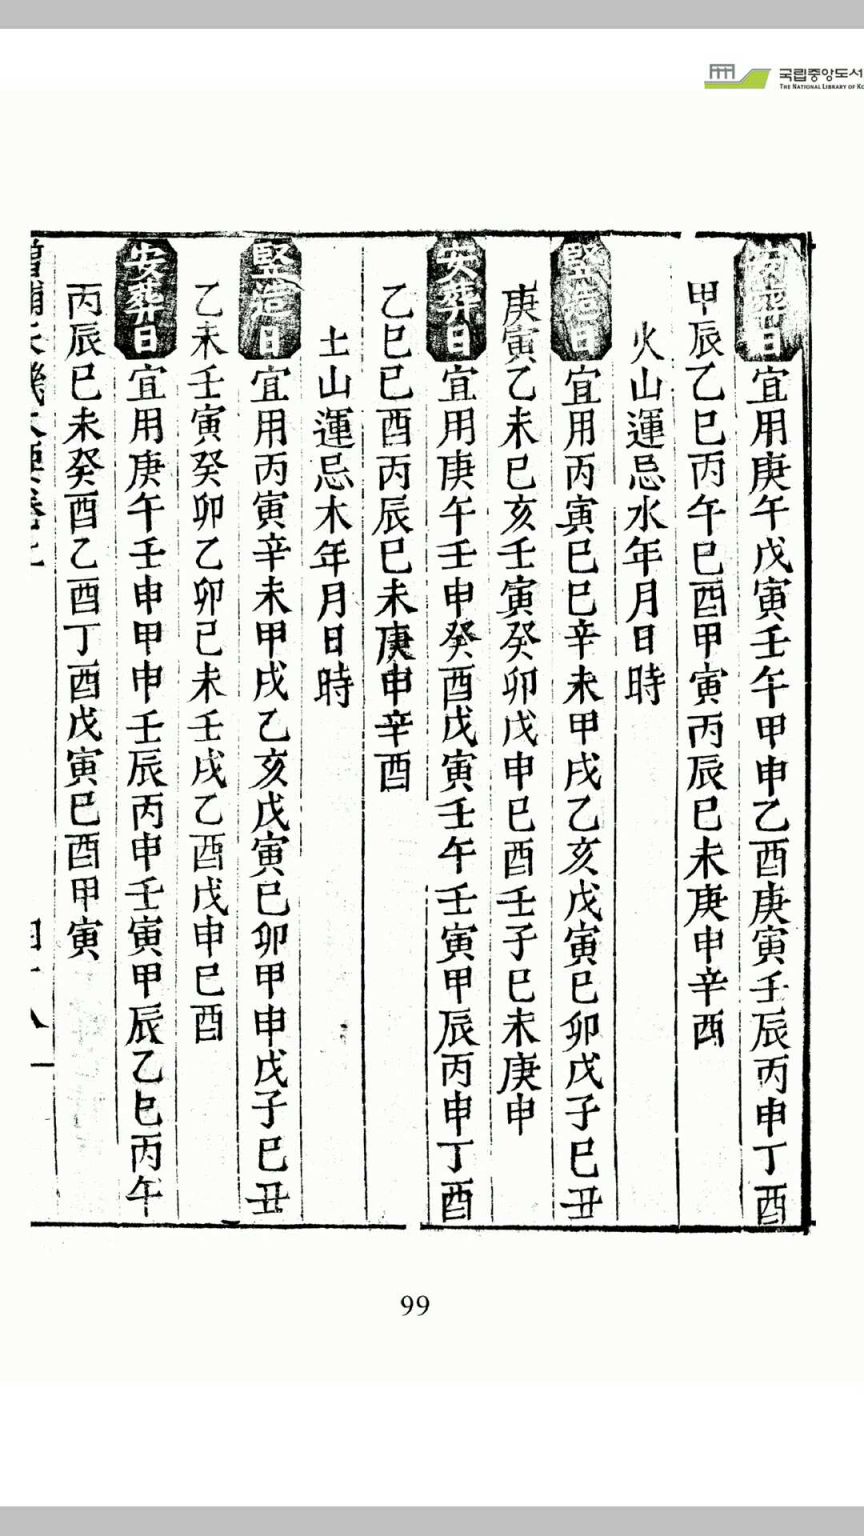 국립중앙도서
THE NATIONAL LIBRARY OF KO
安葬日宜用庚午戊寅壬午甲申乙酉庚寅壬辰丙申丁酉
甲辰乙巳丙午巳酉甲寅丙辰巳未庚申辛酉
火山運忌水年月日時
竪造日宜用丙寅巳巳辛未甲戌乙亥戊寅巳卯戊子巳丑
庚寅乙未巳亥壬寅癸卯戊申巳酉壬子巳未庚申
安葬日宜用庚午壬申癸酉戊寅壬午壬寅甲辰丙申丁酉
乙巳巳酉丙辰巳未庚申辛酉
土山運忌木年月日時
竪造日宜用丙寅辛未甲戌乙亥戊寅巳卯甲申戊子巳丑
乙未壬寅癸卯乙卯己未壬戌乙酉戊申巳酉
安葬日宜用庚午壬申甲申壬辰丙申壬寅甲辰乙巳丙午
丙辰巳未癸酉乙酉丁酉戊寅巳酉甲寅
99